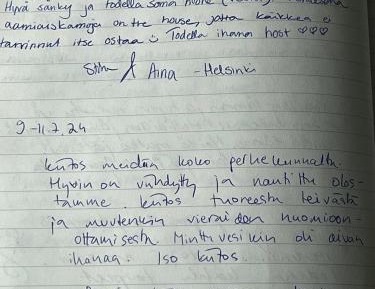 Hyvä sänky ja todella soma huone
aamiaiskamoja on the house, jotta kaikkea ei
tarvinnut itse ostaa ☺ Todella ihana host ♡♡♡
& Aina - Helsinki
9-11.7.24
Kiitos meidän koko perhekunnalta.
Hyvin on viihdytty ja nautittu olos-
tamme. Kiitos tuoreesta leivästä
ja muutenkin vieraiden huomioon-
ottamisesta. Minttuvesikin oli aivan
ihanaa. Iso kiitos.